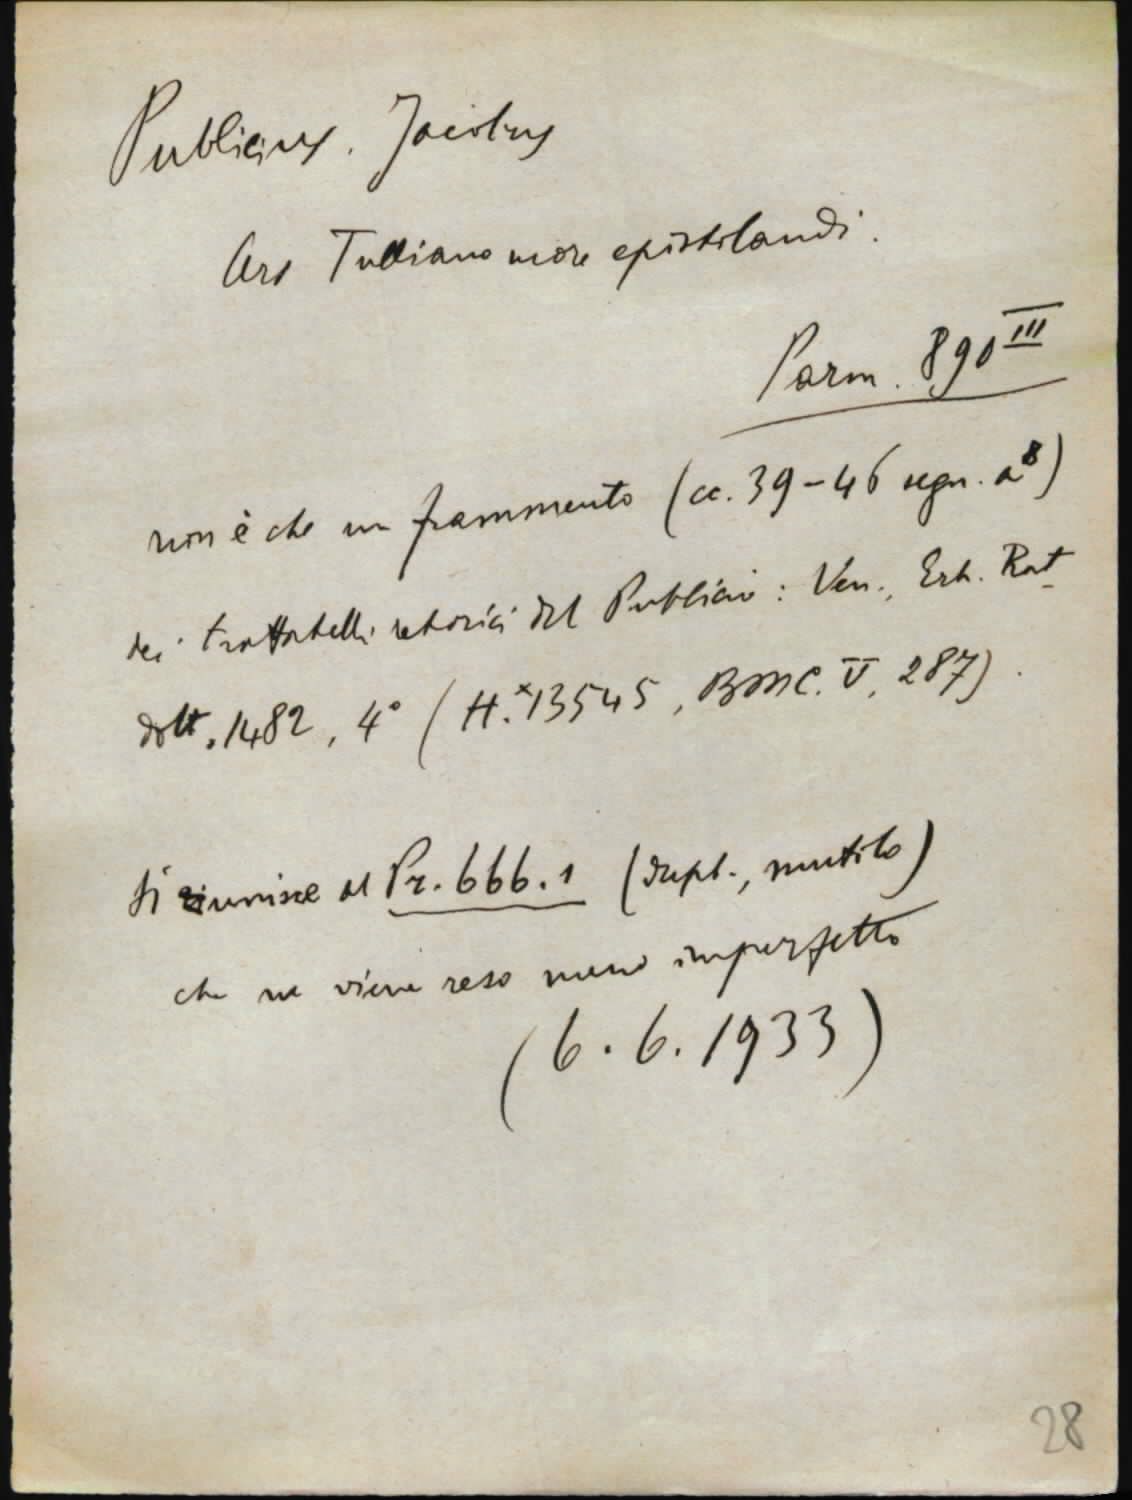 Publicius. Jacobus
Ars Tulliano more epistolandi.
Parm. 890 III
non è che un frammento (cc. 39-46 segn. a⁸)
dei trattatelli retorici del Publicio: Ven., Erh. Rat-
dolt. 1482, 4° (H.ˣ13545, BMC. V. 287).
Si riunisce al Pr. 666.1 (dupl., mutilo)
che ne viene reso meno imperfetto
(6.6.1933)
28